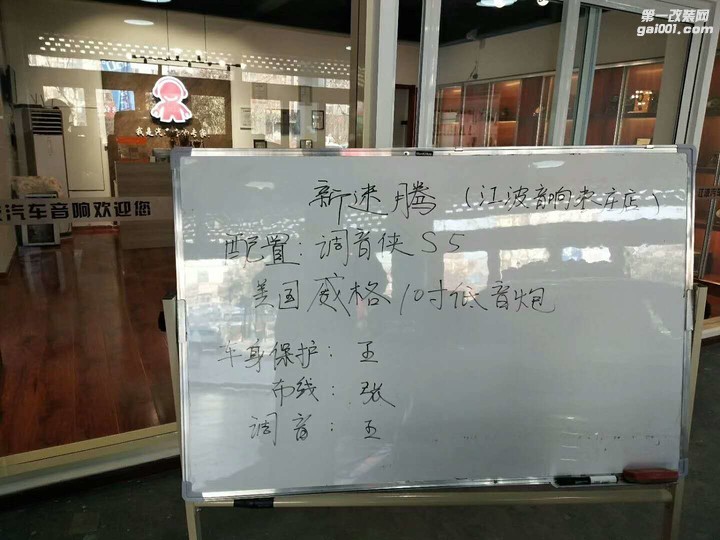 第一改装网
gai001.com
汽车音响欢迎您
新速腾（江波音响枣庄店）
配置：调音侠S5
美国威格10寸低音炮
车身保护：王
布线：张
调音：王